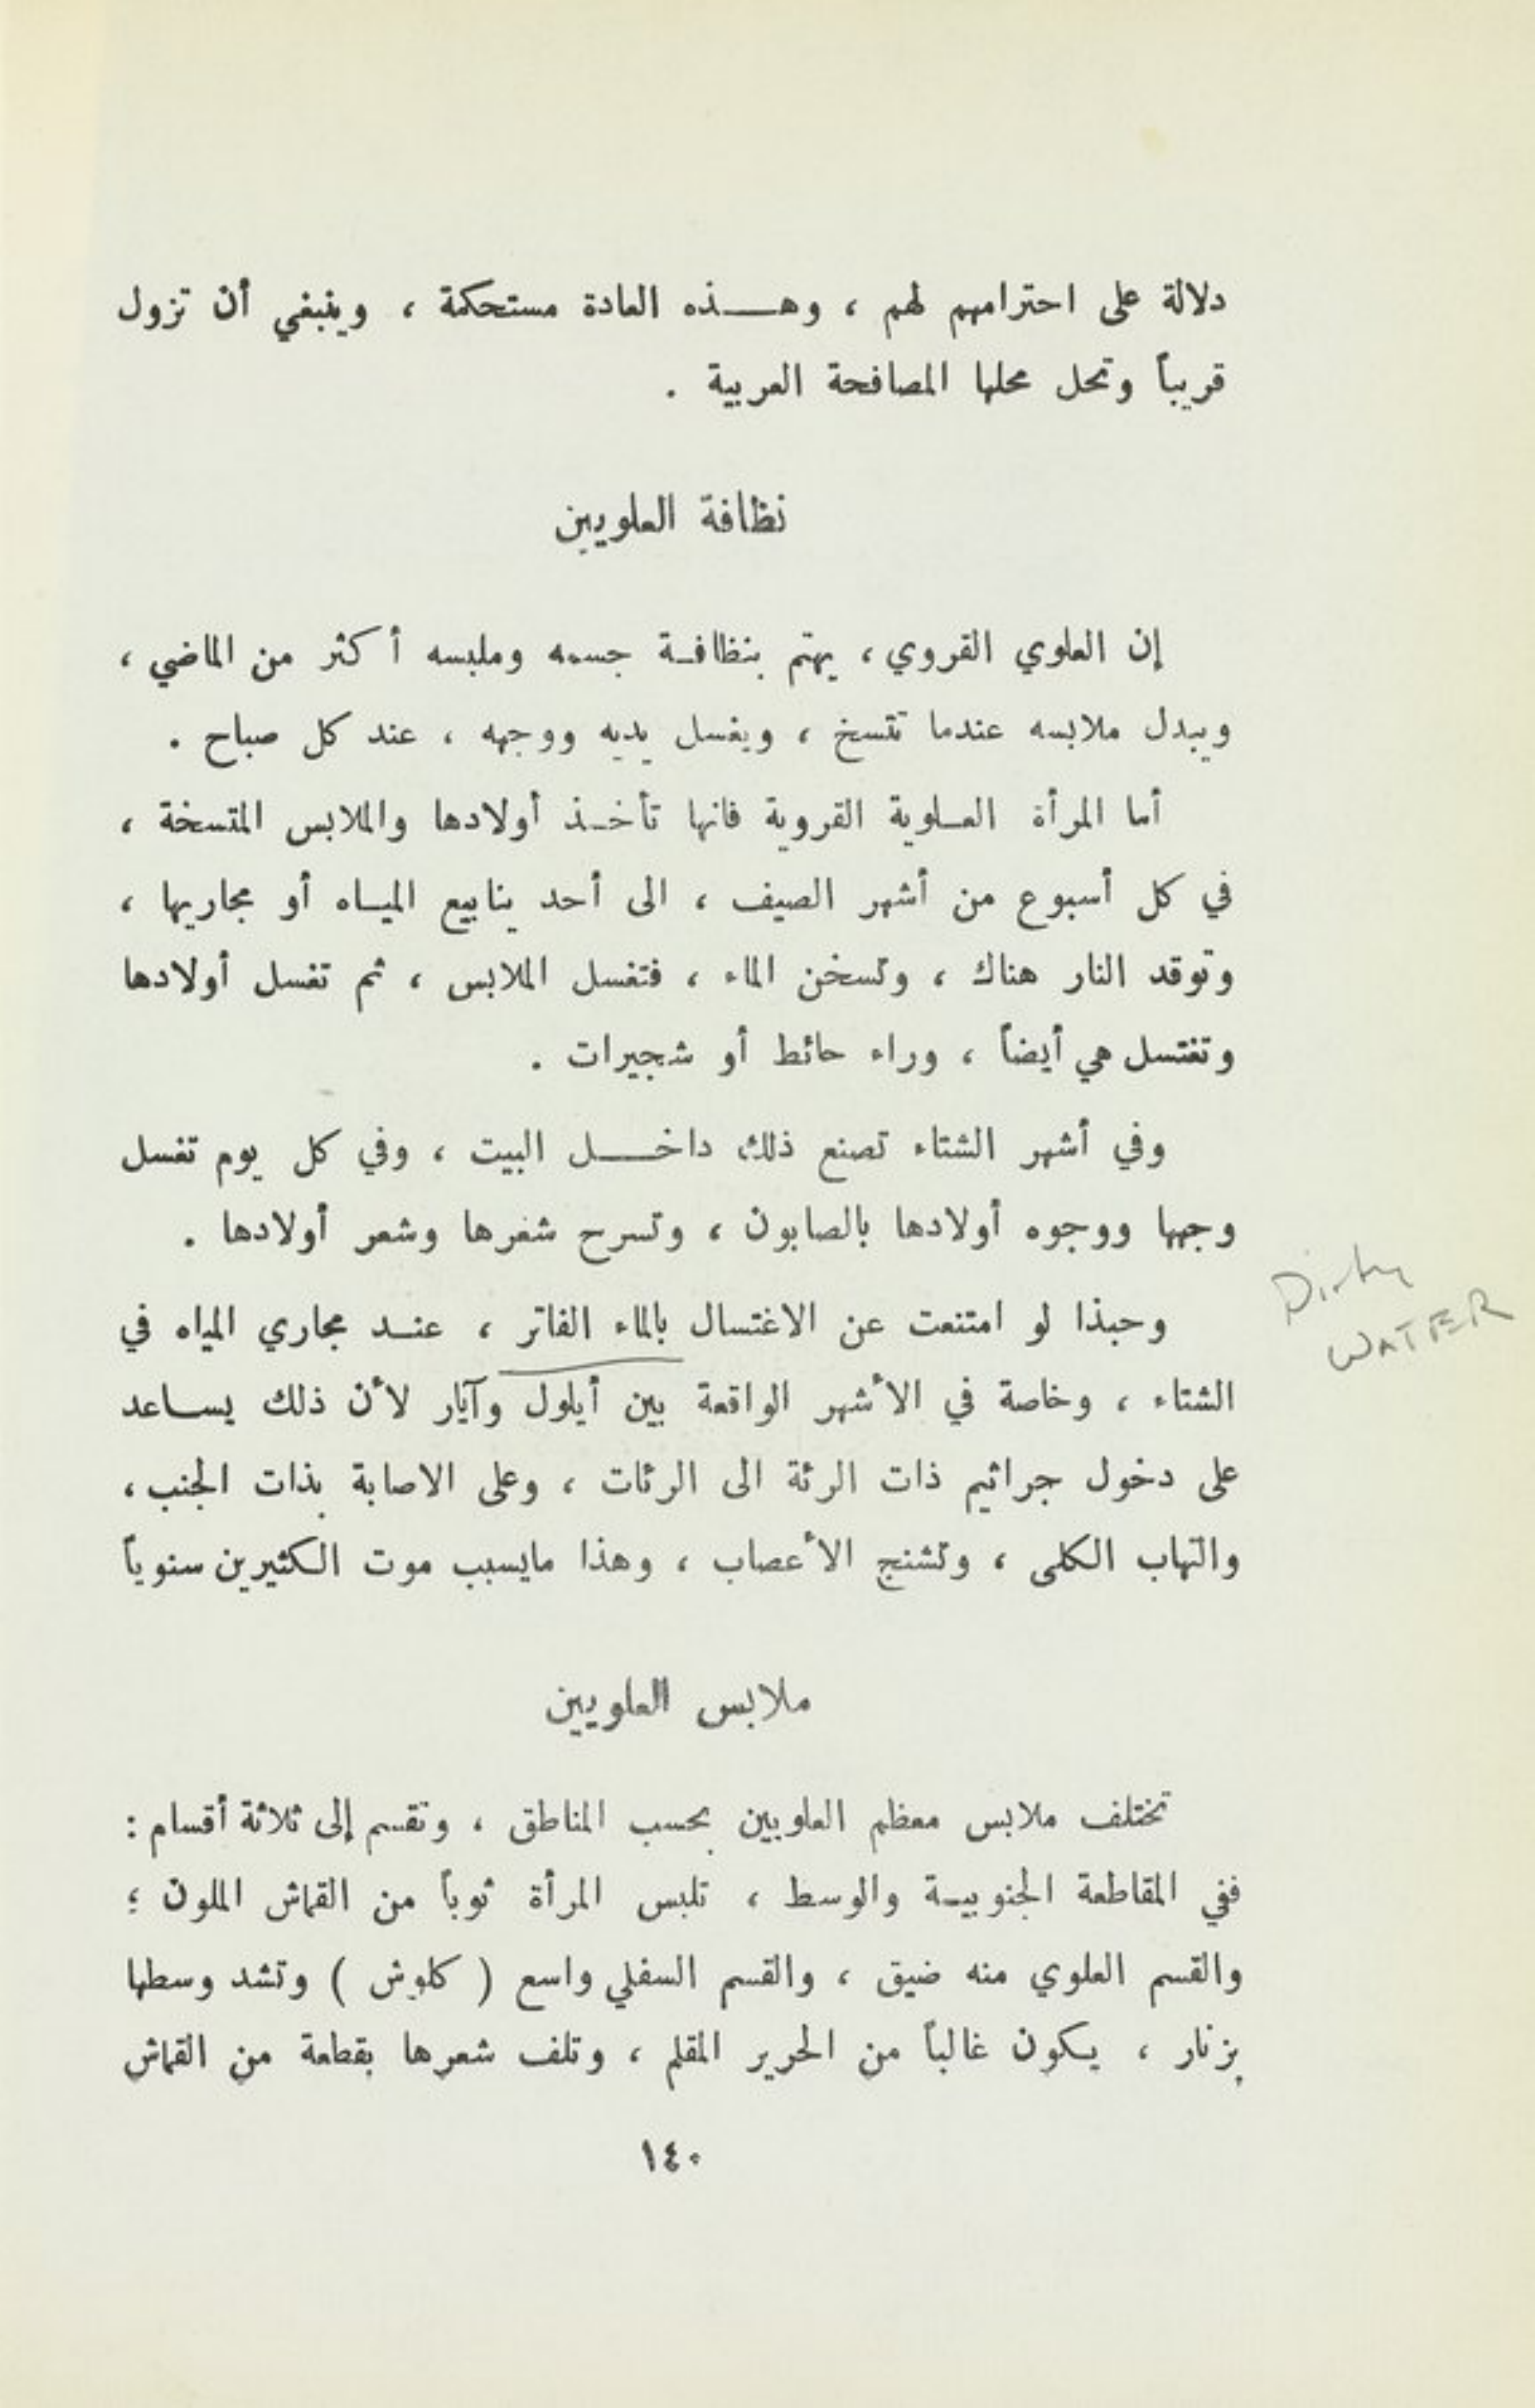 دلالة على احترامهم لهم ، وهـــذه العادة مستحكمة ، وينبغي أن تزول
قريباً وتحل محلها المصافحة العربية .
نظافة العلويين
إن العلوي القروي ، يهتم بنظافـة جسمه وملبسه أكثر من الماضي ،
ويبدل ملابسه عندما تتسخ ، ويغسل يديه ووجهه ، عند كل صباح .
أما المرأة العـلوية القروية فانها تأخـذ أولادها والملابس المتسخة ،
في كل أسبوع من أشهر الصيف ، الى أحد ينابيع الميـاه أو مجاريها ،
وتوقد النار هناك ، وتسخن الماء ، فتغسل الملابس ، ثم تغسل أولادها
وتغتسل هي أيضاً ، وراء حائط أو شجيرات .
وفي أشهر الشتاء تصنع ذلك داخــــل البيت ، وفي كل يوم تغسل
وجهها ووجوه أولادها بالصابون ، وتسرح شعرها وشعر أولادها .
وحبذا لو امتنعت عن الاغتسال بالماء الفاتر ، عنـد مجاري المياه في
الشتاء ، وخاصة في الأشهر الواقعة بين أيلول وآيار لأن ذلك يسـاعد
على دخول جراثيم ذات الرئة الى الرئات ، وعلى الاصابة بذات الجنب ،
والتهاب الكلى ، وتشنج الأعصاب ، وهذا مايسبب موت الكثيرين سنوياً
ملابس العلويين
تختلف ملابس معظم العلويين بحسب المناطق ، وتقسم إلى ثلاثة أقسام :
ففي المقاطعة الجنوبيـة والوسط ، تلبس المرأة ثوباً من القماش الملون ؛
والقسم العلوي منه ضيق ، والقسم السفلي واسع ( كلوش ) وتشد وسطها
بزنار ، يكون غالباً من الحرير المقلم ، وتلف شعرها بقطعة من القماش
١٤٠
Dirty
WATER